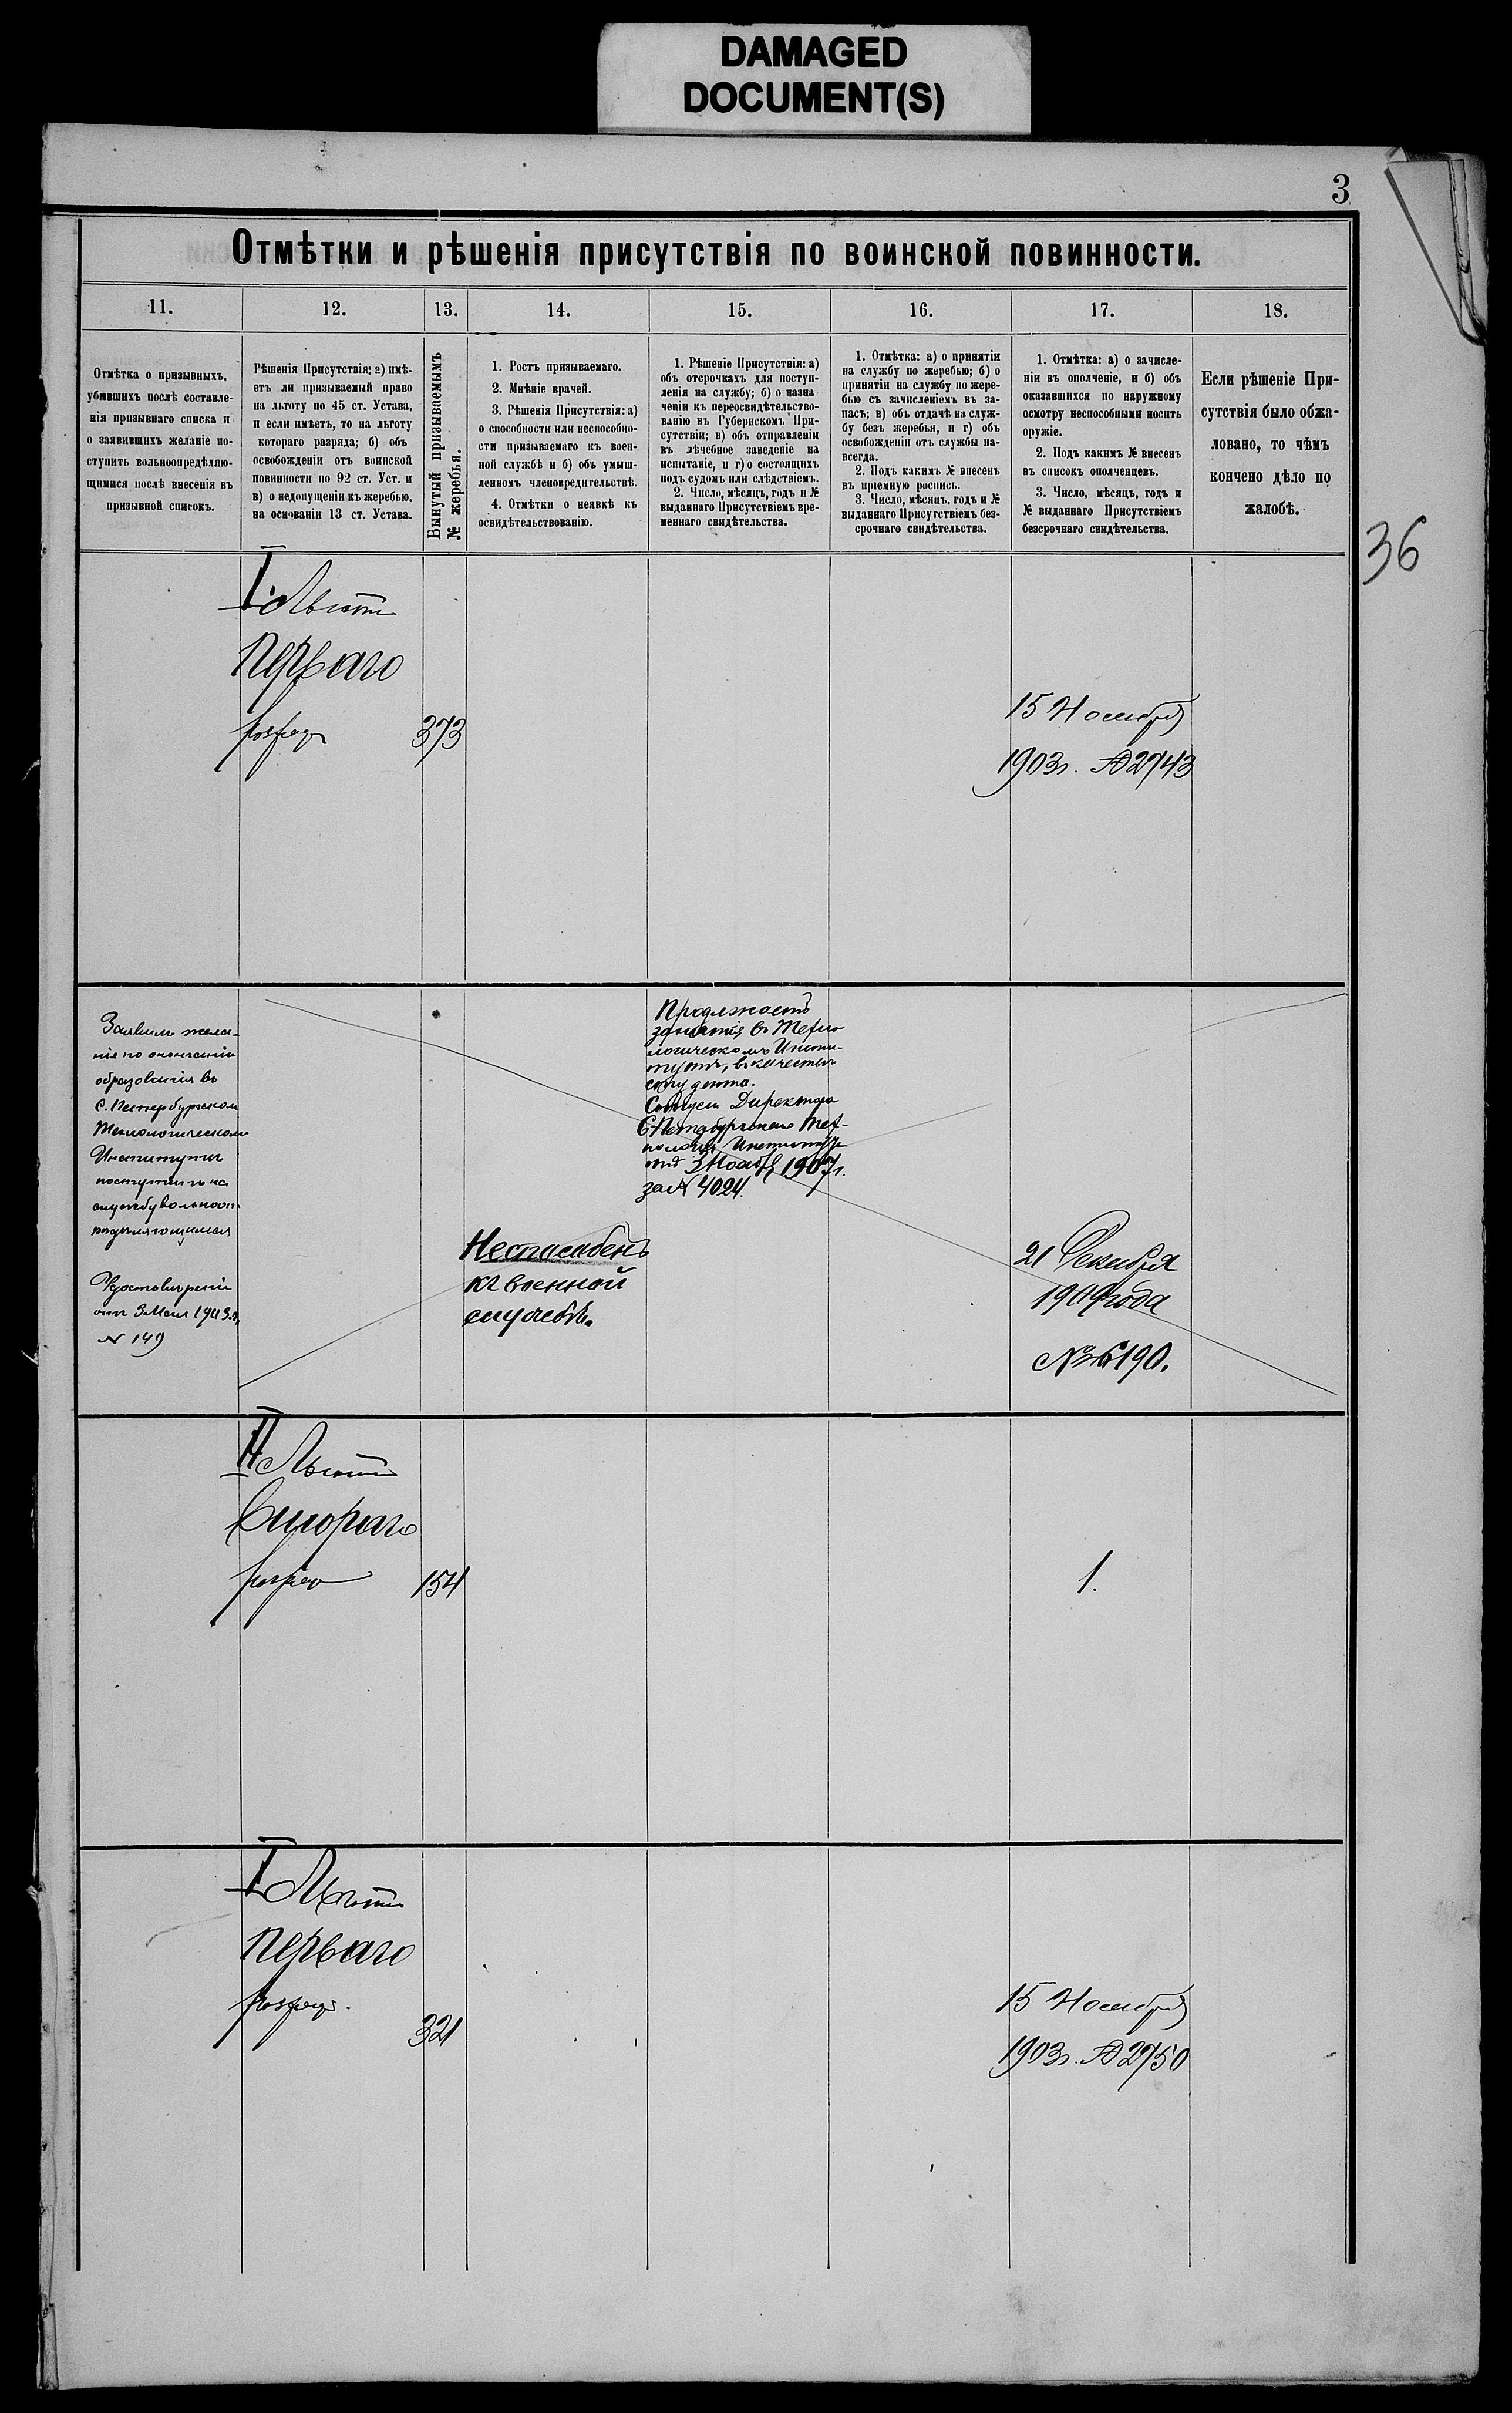 DAMAGED
DOCUMENT(S)
3
Отмѣтки и рѣшенія присутствія по воинской повинности.
11.
12.
13.
14.
15.
16.
17.
18.
Отмѣтка о призывныхъ,
убывшихъ послѣ составле-
нія призывнаго списка и
о заявившихъ желаніе по-
ступить вольноопредѣляю-
щимися послѣ внесенія въ
призывной списокъ.
Рѣшенія Присутствія: а) имѣ-
етъ ли призываемый право
на льготу по 45 ст. Устава,
и если имѣетъ, то на льготу
котораго разряда; б) объ
освобожденіи отъ воинской
повинности по 92 ст. Уст. и
в) о недопущеніи къ жеребью,
на основаніи 13 ст. Устава.
Вынутый призываемымъ
№ жеребья.
1. Ростъ призываемаго.
2. Мнѣніе врачей.
3. Рѣшенія Присутствія: а)
о способности или неспособно-
сти призываемаго къ воен-
ной службѣ и б) объ умыш-
ленномъ членовредительствѣ.
4. Отмѣтки о неявкѣ къ
освидѣтельствованію.
1. Рѣшеніе Присутствія: а)
объ отсрочкахъ для поступ-
ленія на службу; б) о назна
ченіи къ переосвидѣтельство-
ванію въ Губернскомъ При-
сутствіи; в) объ отправленіи
въ лѣчебное заведеніе на
испытаніе, и г) о состоящихъ
подъ судомъ или слѣдствіемъ.
2. Число, мѣсяцъ, годъ и №
выданнаго Присутствіемъ вре-
меннаго свидѣтельства.
1. Отмѣтка: а) о принятіи
на службу по жеребью; б) о
принятіи на службу по жере-
бью съ зачисленіемъ въ за-
пасъ; в) объ отдачѣ на служ-
бу безъ жеребья, и г) объ
освобожденіи отъ службы на-
всегда.
2. Подъ какимъ № внесенъ
въ пріемную роспись.
3. Число, мѣсяцъ, годъ и №
выданнаго Присутствіемъ без-
срочнаго свидѣтельства.
1. Отмѣтка: а) о зачисле-
ніи въ ополченіе, и б) объ
оказавшихся по наружному
осмотру неспособными носить
оружіе.
2. Подъ какимъ № внесенъ
въ списокъ ополченцевъ.
3. Число, мѣсяцъ, годъ и
№ выданнаго Присутствіемъ
безсрочнаго свидѣтельства.
Если рѣшеніе При-
сутствія было обжа-
ловано, то чѣмъ
кончено дѣло по
жалобѣ.
36
I Льготы
перваго
разряда
373
15 Ноября
1903г. № 2743
Заявилъ жела-
ніе по окончаніи
образованія въ
С. Петербургскомъ
Технологическомъ
Институтѣ
поступить на
службу вольноо-
предѣляющимся
Удостовѣреніе
отъ 3 Мая 1903 г.
№ 149
Неспособенъ
къ военной
службѣ.
Продолжаетъ
занятія въ Техно
логическомъ Инсти-
тутѣ, въ качествѣ
студента.
Директора
С Петербургскаго Тех-
нологич. Института
отъ 3 Ноября 1907г.
за № 4024.
21 Декабря
1909 года
№ 6190.
II Льготы
Второго
разряда
154
1.
I Льготы
перваго
разряда
321
15 Ноября
1903г. № 2750